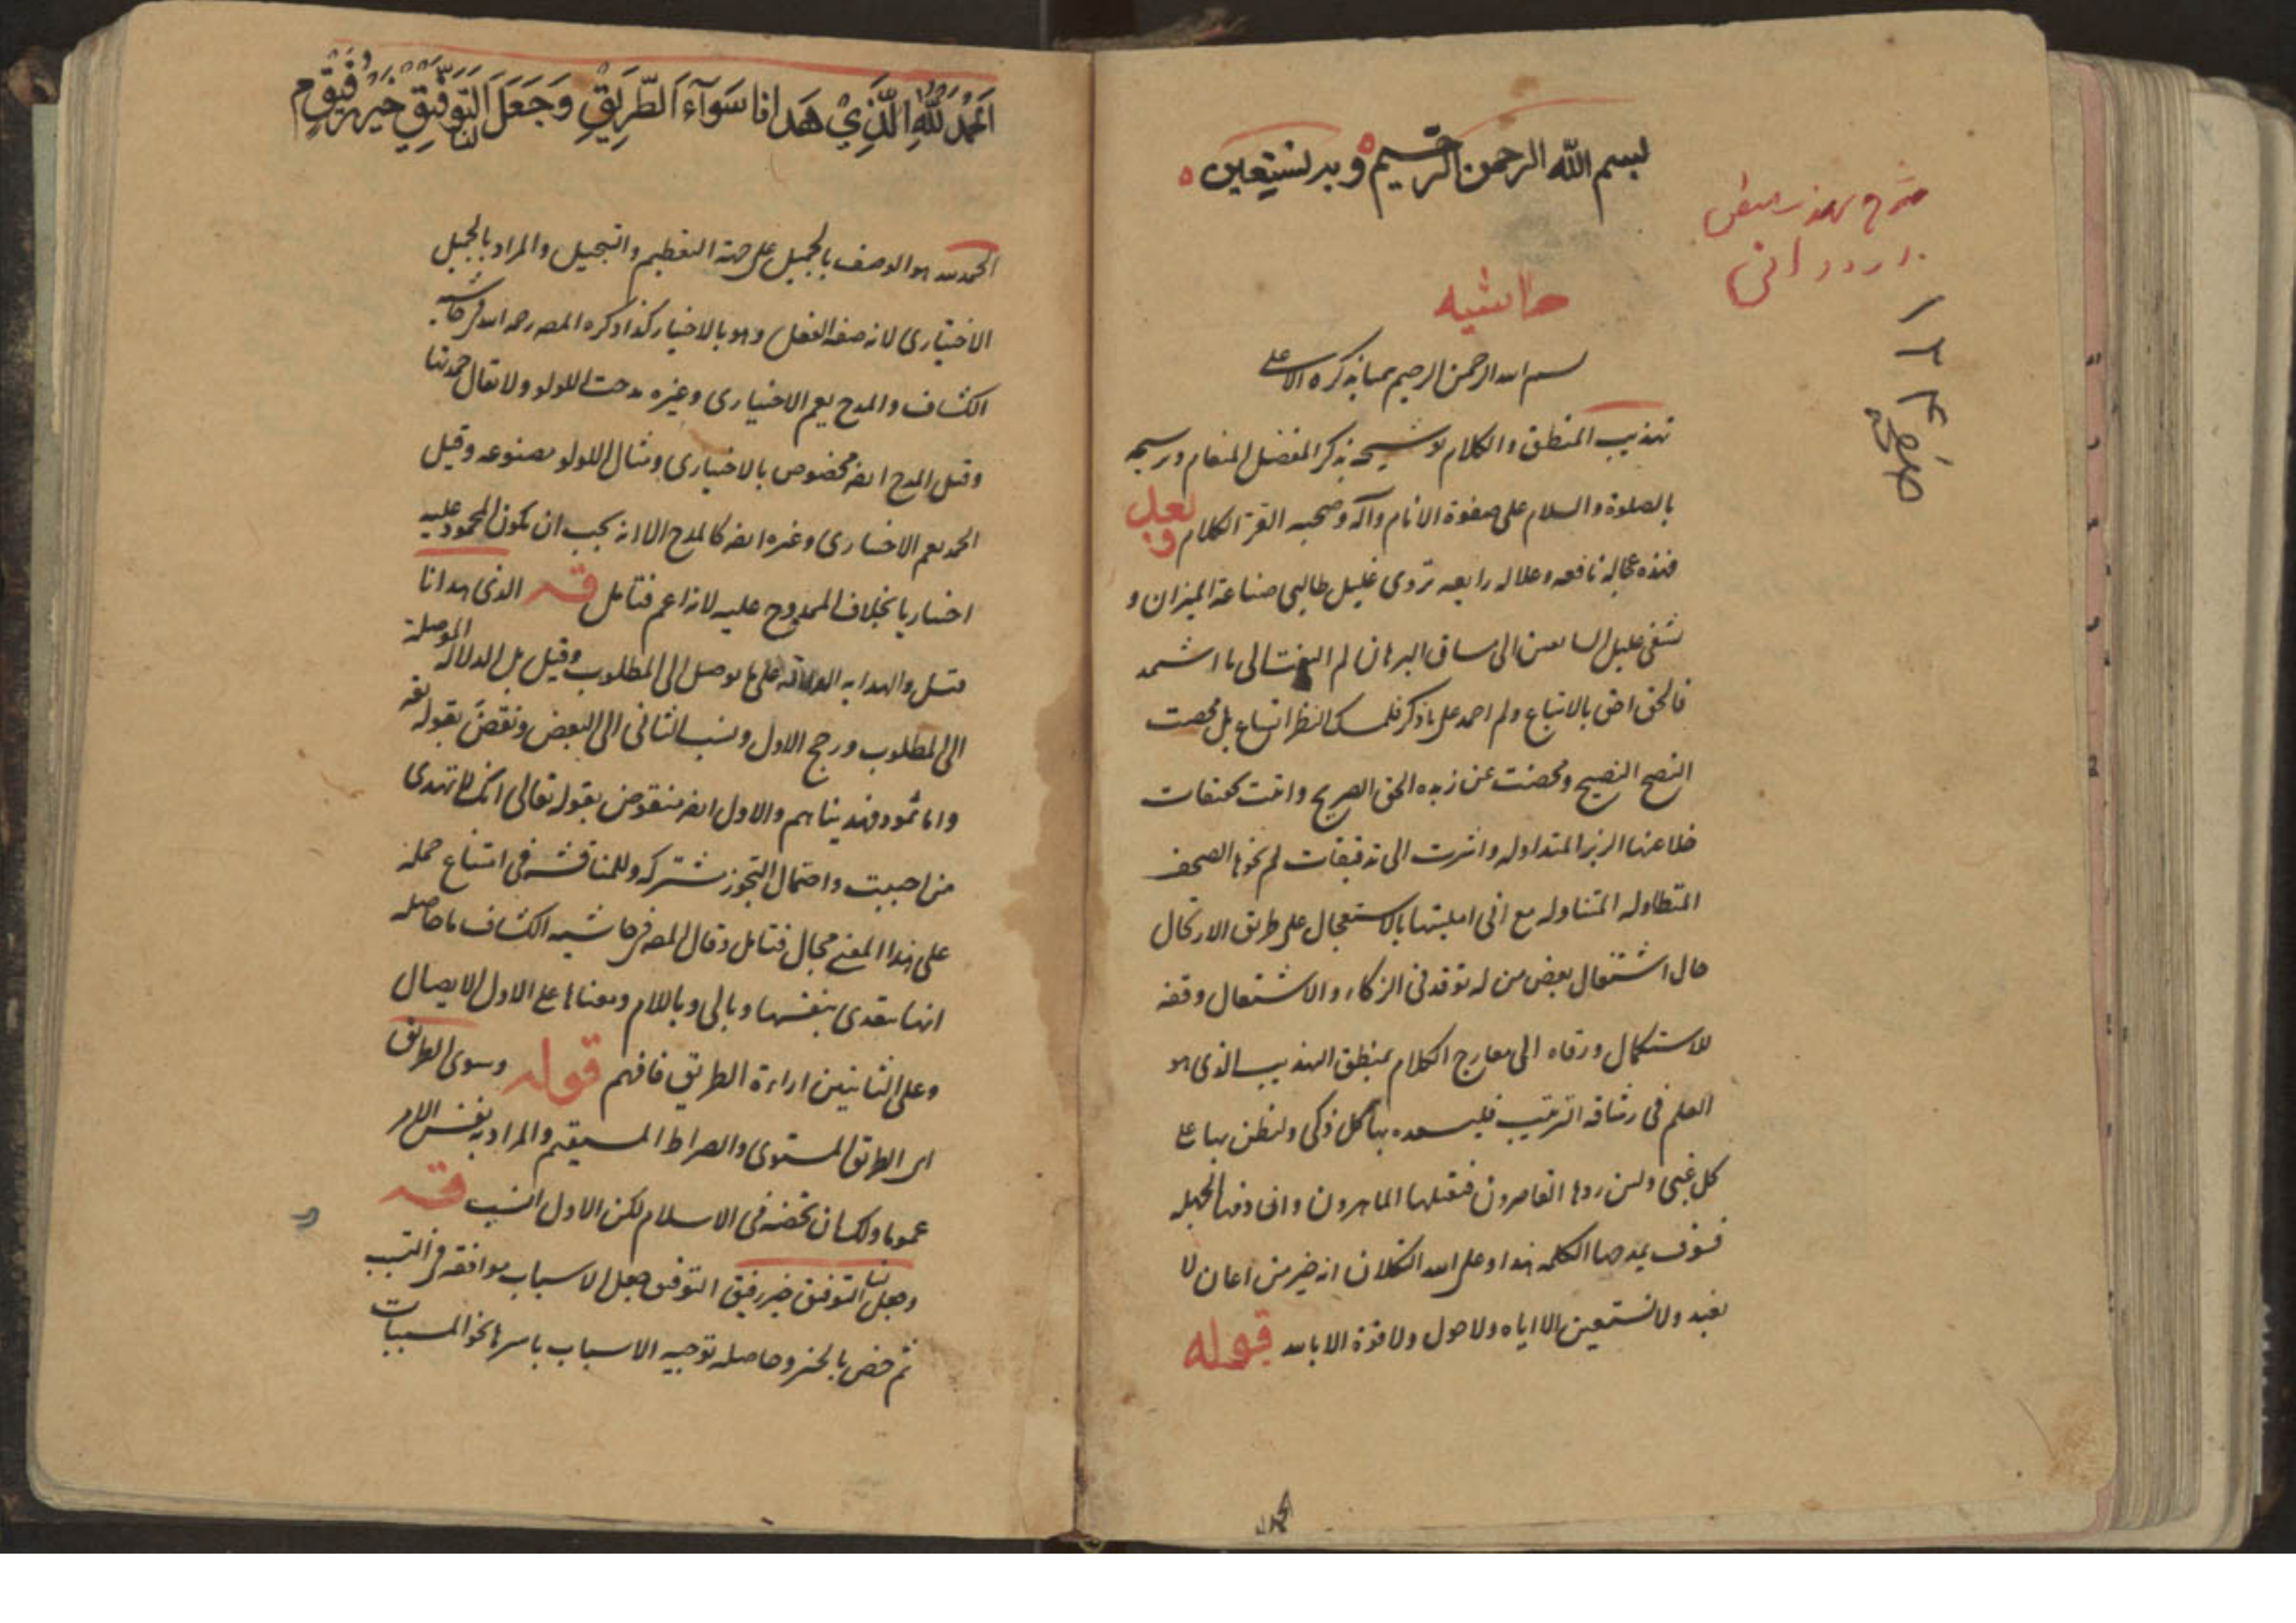 بسم الله الرحمن الرحيم وبه نستعين
شرح تهذيب منطق
حاشيه
١٢٤
صفحه
بسم الله الرحمن الرحيم
تهذيب المنطق والكلام توشيحه بذكر المفضل المنعام وترشيحه
بالصلوة والسلام على صفوة الانام وآله وصحبه الغر الكرام وبعد
فهذه عجاله نافعه وعلاله رايعه تروى غليل طالبى صناعة الميزان و
تشفى عليل السابقين الى مساق البرهان لم التفت الى ما اشتهر
فالحق احق بالاتباع ولم اجمد على ما ذكر فلمسلك النظر اتساع بل محضت
النصح النصيح ومخضت عن زبده الحق الصريح واتيت بتحقيقات
خلا عنها الزبر المتداوله واشرت الى تدقيقات لم تحوها الصحف
المتطاوله المتناوله مع انى امليتها بالاستعجال على طريق الارتجال
حال اشتغال بعض من له توقد فى الذكاء والاشتعال وفقه
للاستكمال ورقاه الى معارج الكلام بمنطق التهذيب الذى هو
العلم فى رشاقة الترتيب بها كل ذكى وليظن بها على
كل غبى ولئن ردها القاصرون فيقبلها الماهرون وان ذمها الجهله
فسوف يمدحها الكمله هذا وعلى الله التكلان انه خير من اعان لا
نعبد ولا نستعين الا اياه ولا حول ولا قوة الا بالله قوله
اَلحَمْدُ لِلّٰهِ الَّذِيْ هَدَانا سَوَآءَ الطَّرِيْقِ وَجَعَلَ لَنَا التَّوفِيْقَ خَيْرَ رَفِيْقٍ
الحمد لله هو الوصف بالجميل على جهة التعظيم والتبجيل والمراد بالجميل
الاختيارى لانه صفة الفعل وهو بالاختيار كذا ذكره المصـ رحمه الله فى حاشيه
الكشاف والمدح يعم الاختيارى وغيره مدحت اللولو ولا يقال حمدتها
وقيل المدح ايضه مخصوص بالاختيارى ومثال اللولو مصنوعه وقيل
الحمد يعم الاختيارى وغيره ايضه كالمدح الا انه يجب ان يكون المحمود عليه
اختياريا بخلاف الممدوح عليه لانه اعم فتامل قـه الذى هدانا
قيل والهدايه الدلالة على ما يوصل الى المطلوب وقيل بل الدلاله الموصلة
الى المطلوب ورجح الاول ونسب الثانى الى البعض ونقض بقوله تعه
واما ثمود فهديناهم والاول ايضه منقوض بقوله تعالى انك لا تهدى
من احببت واحتمال التجوز مشتركه وللمناقشه فى امتناع حمله
على هذا المعنى مجال فتامل وقال المصـ فى حاشيه الكشاف ما حاصله
انها يتعدى بنفسها وبالى وباللام ومعناها على الاول الايصال
وعلى الثانيين اراءة الطريق فافهم قوله وسوى الطريق
اى الطريق المستوى والصراط المستقيم والمراد به نفس الامر
عموما ولك ان تخصه فى الاسلام لكن الاول انسب قـه
وجعل لنا التوفيق خير رفيق التوفيق جعل الاسباب موافقه فى التسبب
ثم خص بالخير وحاصله توجيه الاسباب باسرها نحو المسببات